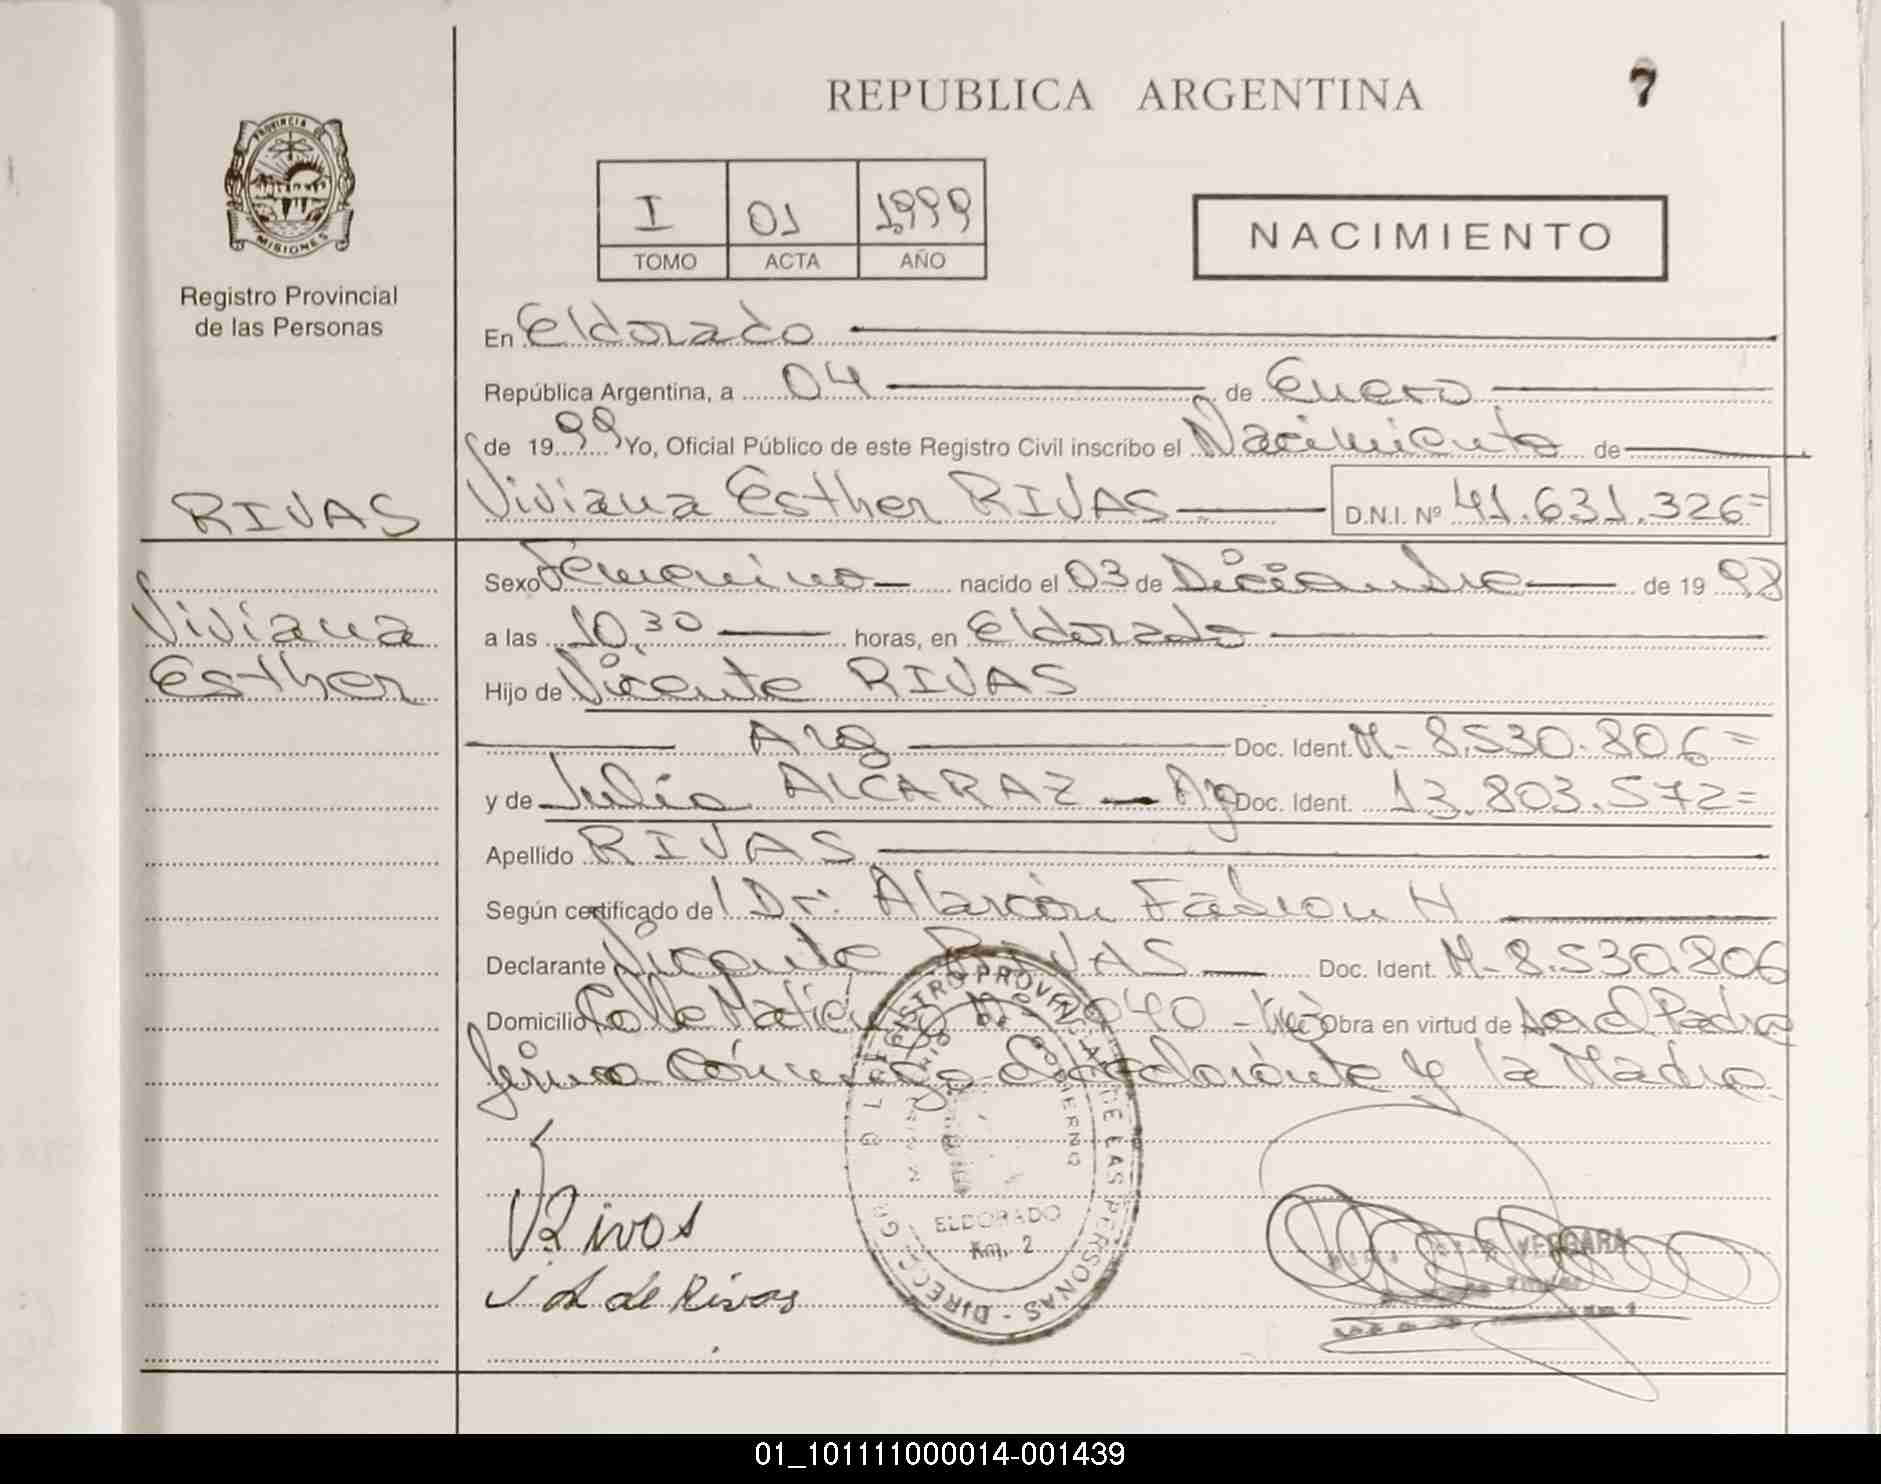 REPUBLICA ARGENTINA
7
PROVINCIA DE
MISIONES
Registro Provincial
de las Personas
I 01 1.999
TOMO ACTA AÑO
NACIMIENTO
En Eldorado
República Argentina, a 04 de Enero
de 1999 Yo, Oficial Público de este Registro Civil inscribo el Nacimiento de
RIVAS
Viviana Esther RIVAS D.N.I. Nº 41.631.326=
Viviana
Esther
Sexo Femenino nacido el 03 de Diciembre de 1998
a las 10,30 horas, en Eldorado
Hijo de Vicente RIVAS
Arg Doc. Ident. M-8.530.806=
y de Julia ALCARAZ - Arg Doc. Ident. 13.803.572=
Apellido RIVAS
Según certificado del Dr. Alarcón Fabion H
Declarante Vicente RIVAS Doc. Ident. M-8.530.806
Domicilio Calle Nº 2040 - Obra en virtud de ser el Padre
firma conmigo el declarante y la Madre.
ELDORADO
Km. 2
VRivas
J A de Rivas
VERGARA
01_101111000014-001439